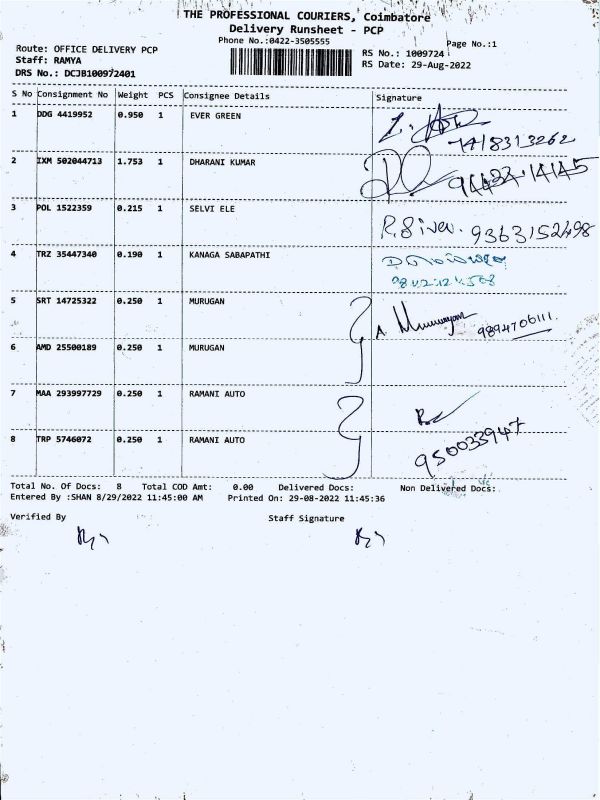 THE PROFESSIONAL COURIERS, Coimbatore
Delivery Runsheet - PCP
Phone No.:0422-3505555
Page No.:1
Route: OFFICE DELIVERY PCP
Staff: RAMYA
DRS No.: DCJB100972401
RS No.: 1009724
RS Date: 29-Aug-2022
S No Consignment No Weight PCS Consignee Details Signature
1 DDG 4419952 0.950 1 EVER GREEN
7418313262
2 IXM 502044713 1.753 1 DHARANI KUMAR
3 POL 1522359 0.215 1 SELVI ELE
9363152498
4 TRZ 35447340 0.190 1 KANAGA SABAPATHI
5 SRT 14725322 0.250 1 MURUGAN
9894706111
6 AMD 25500189 0.250 1 MURUGAN
7 MAA 293997729 0.250 1 RAMANI AUTO
8 TRP 5746072 0.250 1 RAMANI AUTO
950033947
Total No. Of Docs: 8 Total COD Amt: 0.00 Delivered Docs: Non Delivered Docs:
Entered By :SHAN 8/29/2022 11:45:00 AM Printed On: 29-08-2022 11:45:36
Verified By Staff Signature